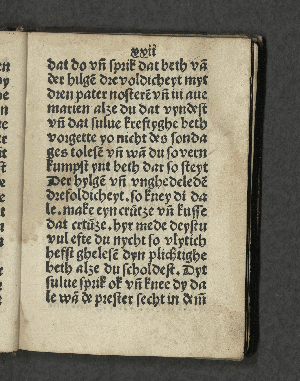 xvii
dat do vn̄ sprik dat beth vā
der hilgē drevoldicheyt myt
dren pater nosterē vn̄ iii ave
marien alze du dat vyndest
vn̄ dat sulue kreftyghe beth
vorgette yo nicht des sonda
ges tolesē vn̄ wā du so vern
kumpst ynt beth dar so steyt
Der hylgē vn̄ vnghedeledē
drefoldicheyt. so kney di da
le. make eyn crütze vn̄ kusse
dat crtüze. hyr mede deystu
vul efte du nycht so vlytich
hefst ghelesē dyn plichtighe
beth alze du scholdest. Dyt
sulue sprik ok vn̄ knee dy da
le wā de prester secht in dem̄